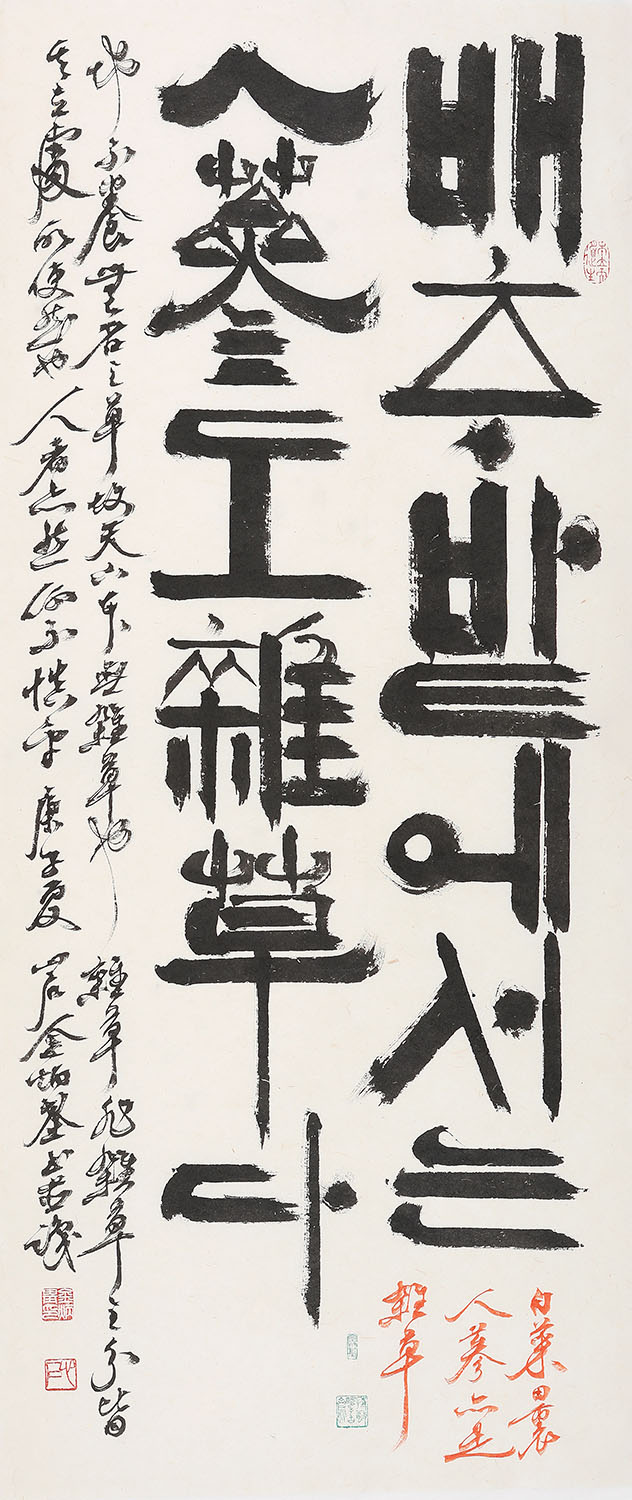 배추밭에서는
人蔘도雜草다
白菜田裏
人蔘亦是
雜草
地不養無名之草故天下本無雜草也雜草非雜草之分皆
其立處所使然也人者亦然何不愼乎庚子夏心石金炳基書並識